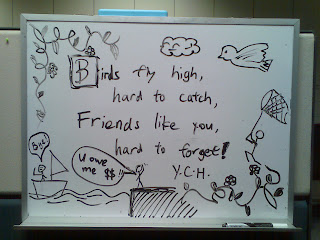 Birds fly high,
hard to catch,
Friends like you,
hard to forget!
Y.C.H.
Bye!
u owe
me $$